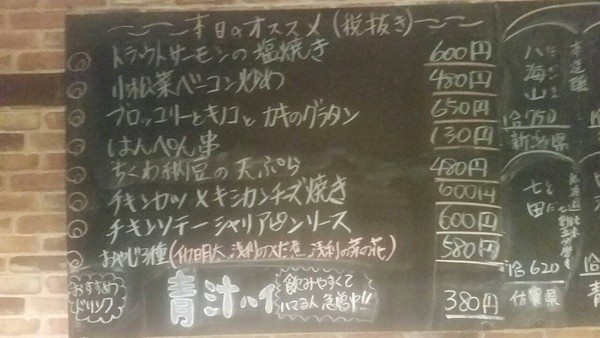 本日のオススメ (税抜き)
トラウトサーモンの塩焼き 600円
小松菜ベーコン炒め 480円
ブロッコリーとキノコとカキのグラタン 650円
はんぺん串 130円
ちくわ納豆の天ぷら 480円
チキンカツメキシカンチーズ焼き 600円
チキンソテーシャリアピンソース 600円
おやじ3種 (明太 浅利 浅利の菜の花) 580円
おすすめ
ドリンク
青汁ハイ
飲みやすくて
ハマる人 急増中!! 380円
八海山
本造醸
1合750
新潟県
七田
純米
1合620
佐賀県